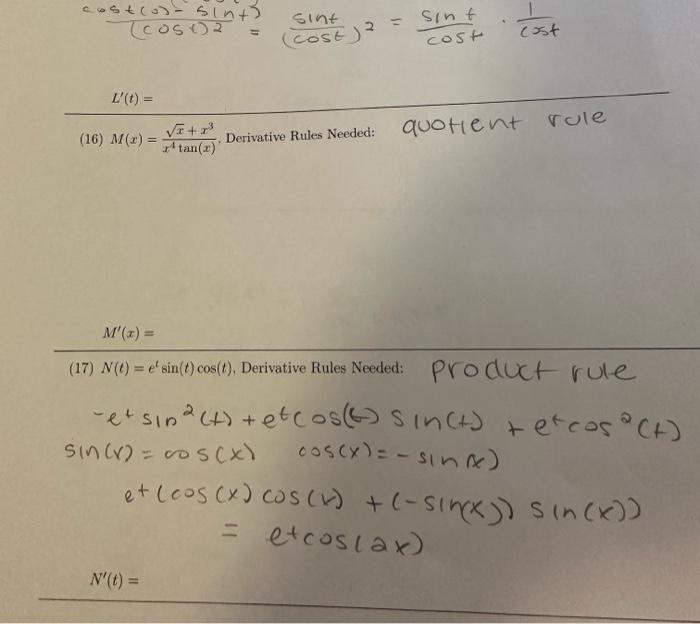 cost(0) - sint)
(cost)2 = sint
(cost)2 = sint
cost · 1
cost
L'(t) =
(16) M(x) = √x + x³
x⁴ tan(x) , Derivative Rules Needed: quotient rule
M'(x) =
(17) N(t) = eᵗ sin(t) cos(t), Derivative Rules Needed: product rule
-et sin²(t) + etcos(t) sin(t) + etcos²(t)
sin(x) = cos(x) cos(x) = - sin(x)
et (cos(x) cos(x) + (-sin(x)) sin(x))
= etcos(2x)
N'(t) =